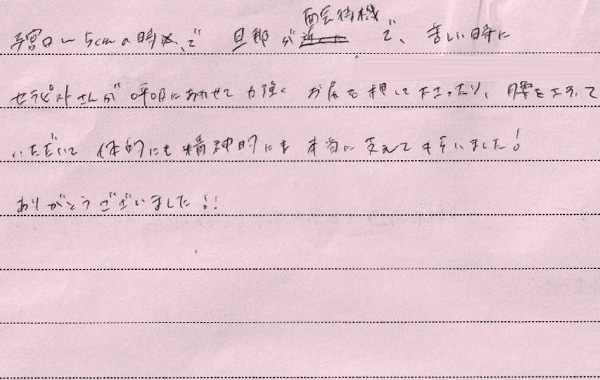 面会待機
子宮口〜5cmの時点で 旦那が で、苦しい時に
セラピストさんが呼吸にあわせて力強く お尻を押して下さったり、腰をさすって
いただいて 体的にも精神的にも 本当に支えて下さいました!
ありがとうございました!!